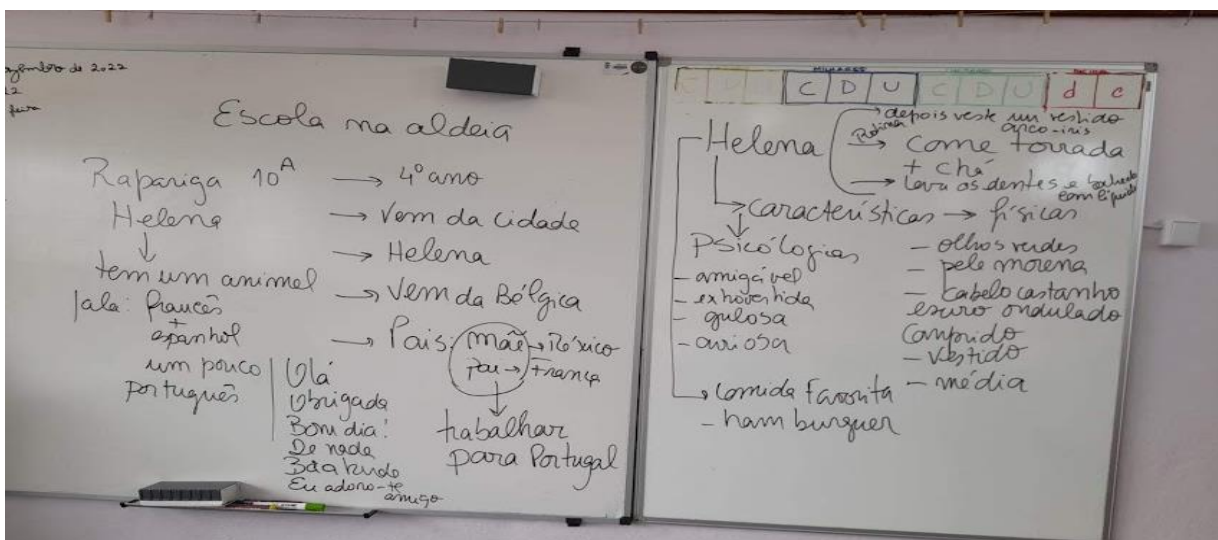 de 2022
feira
Escola na aldeia
Rapariga 10 A → 4º ano
Helena → Vem da cidade
→ Helena
tem um animal → Vem da Bélgica
fala: francês
+
espanhol
um pouco
português
→ Pais: mãe → México
pai → França
trabalhar
para Portugal
Olá
Obrigada
Bom dia!
De nada
Boa tarde
Eu adoro-te
amigo
C D U C D U d c
Helena
Rotina
→ depois veste um vestido
arco-iris
→ come torrada
+ chá
→ lava os dentes e
com líquido
→ características → físicas
Psicólogicas
- amigável
- extrovertida
- gulosa
- curiosa
- olhos verdes
- pele morena
- cabelo castanho
escuro ondulado
comprido
- vestido
- média
→ comida favorita
- hamburguer